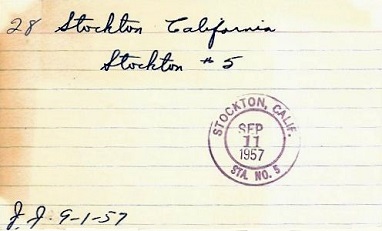 28 Stockton California
Stockton # 5
STOCKTON, CALIF.
SEP
11
1957
STA. NO. 5
J. J. 9-1-57